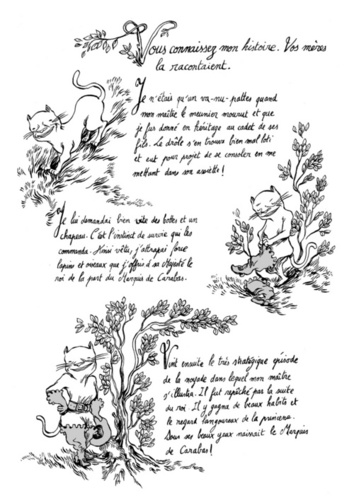 Vous connaissez mon histoire. Vos mères
la racontaient.
Je n'étais qu'un va-nu-pattes quand
mon maître le meunier mourut et que
je fus donné en héritage au cadet de ses
fils. Le drôle s'en trouva bien mal loti
et eut pour projet de se consoler en me
mettant dans son assiette !
Je lui demandai bien vite des bottes et un
chapeau. C'est l'instinct de survie qui les
commanda. Ainsi vêtu, j'attrapai force
lapins et oiseaux que j'offris à sa Majesté le
roi de la part du Marquis de Carabas.
Vint ensuite le très stratégique épisode
de la noyade dans lequel mon maître
s'illustra. Il fut repêché par la suite
du roi. Il y gagna de beaux habits et
le regard langoureux de la princesse.
Sous ses beaux yeux naissait le Marquis
de Carabas !